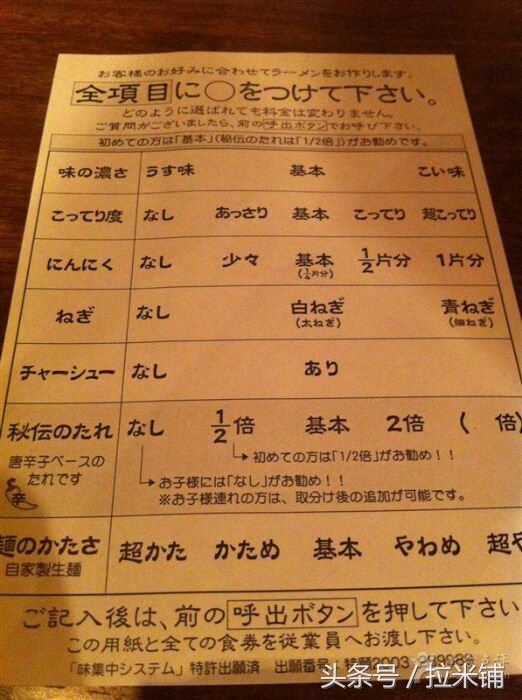 お客様のお好みに合わせてラーメンをお作りします。
全項目に〇をつけて下さい。
どのように選ばれても料金は変わりません。
ご質問がございましたら、前の呼出ボタンでお呼び下さい。
初めての方は「基本」(秘伝のたれは「1/2倍」)がお勧めです。
味の濃さ うす味 基本 こい味
こってり度 なし あっさり 基本 こってり 超こってり
にんにく なし 少々 基本 1/2片分 1片分
(1/4片分)
ねぎ なし 白ねぎ 青ねぎ
(太ねぎ) (細ねぎ)
チャーシュー なし あり
秘伝のたれ なし 1/2倍 基本 2倍 ( 倍)
唐辛子ベースの
たれです
辛
初めての方は「1/2倍」がお勧め!!
お子様には「なし」がお勧め!!
※お子様連れの方は、取分け後の追加が可能です。
麺のかたさ 超かた かため 基本 やわめ 超や
自家製生麺
ご記入後は、前の呼出ボタンを押して下さい
この用紙と全ての食券を従業員へお渡し下さい。
「味集中システム」特許出願済 出願番号
头条号 / 拉米铺